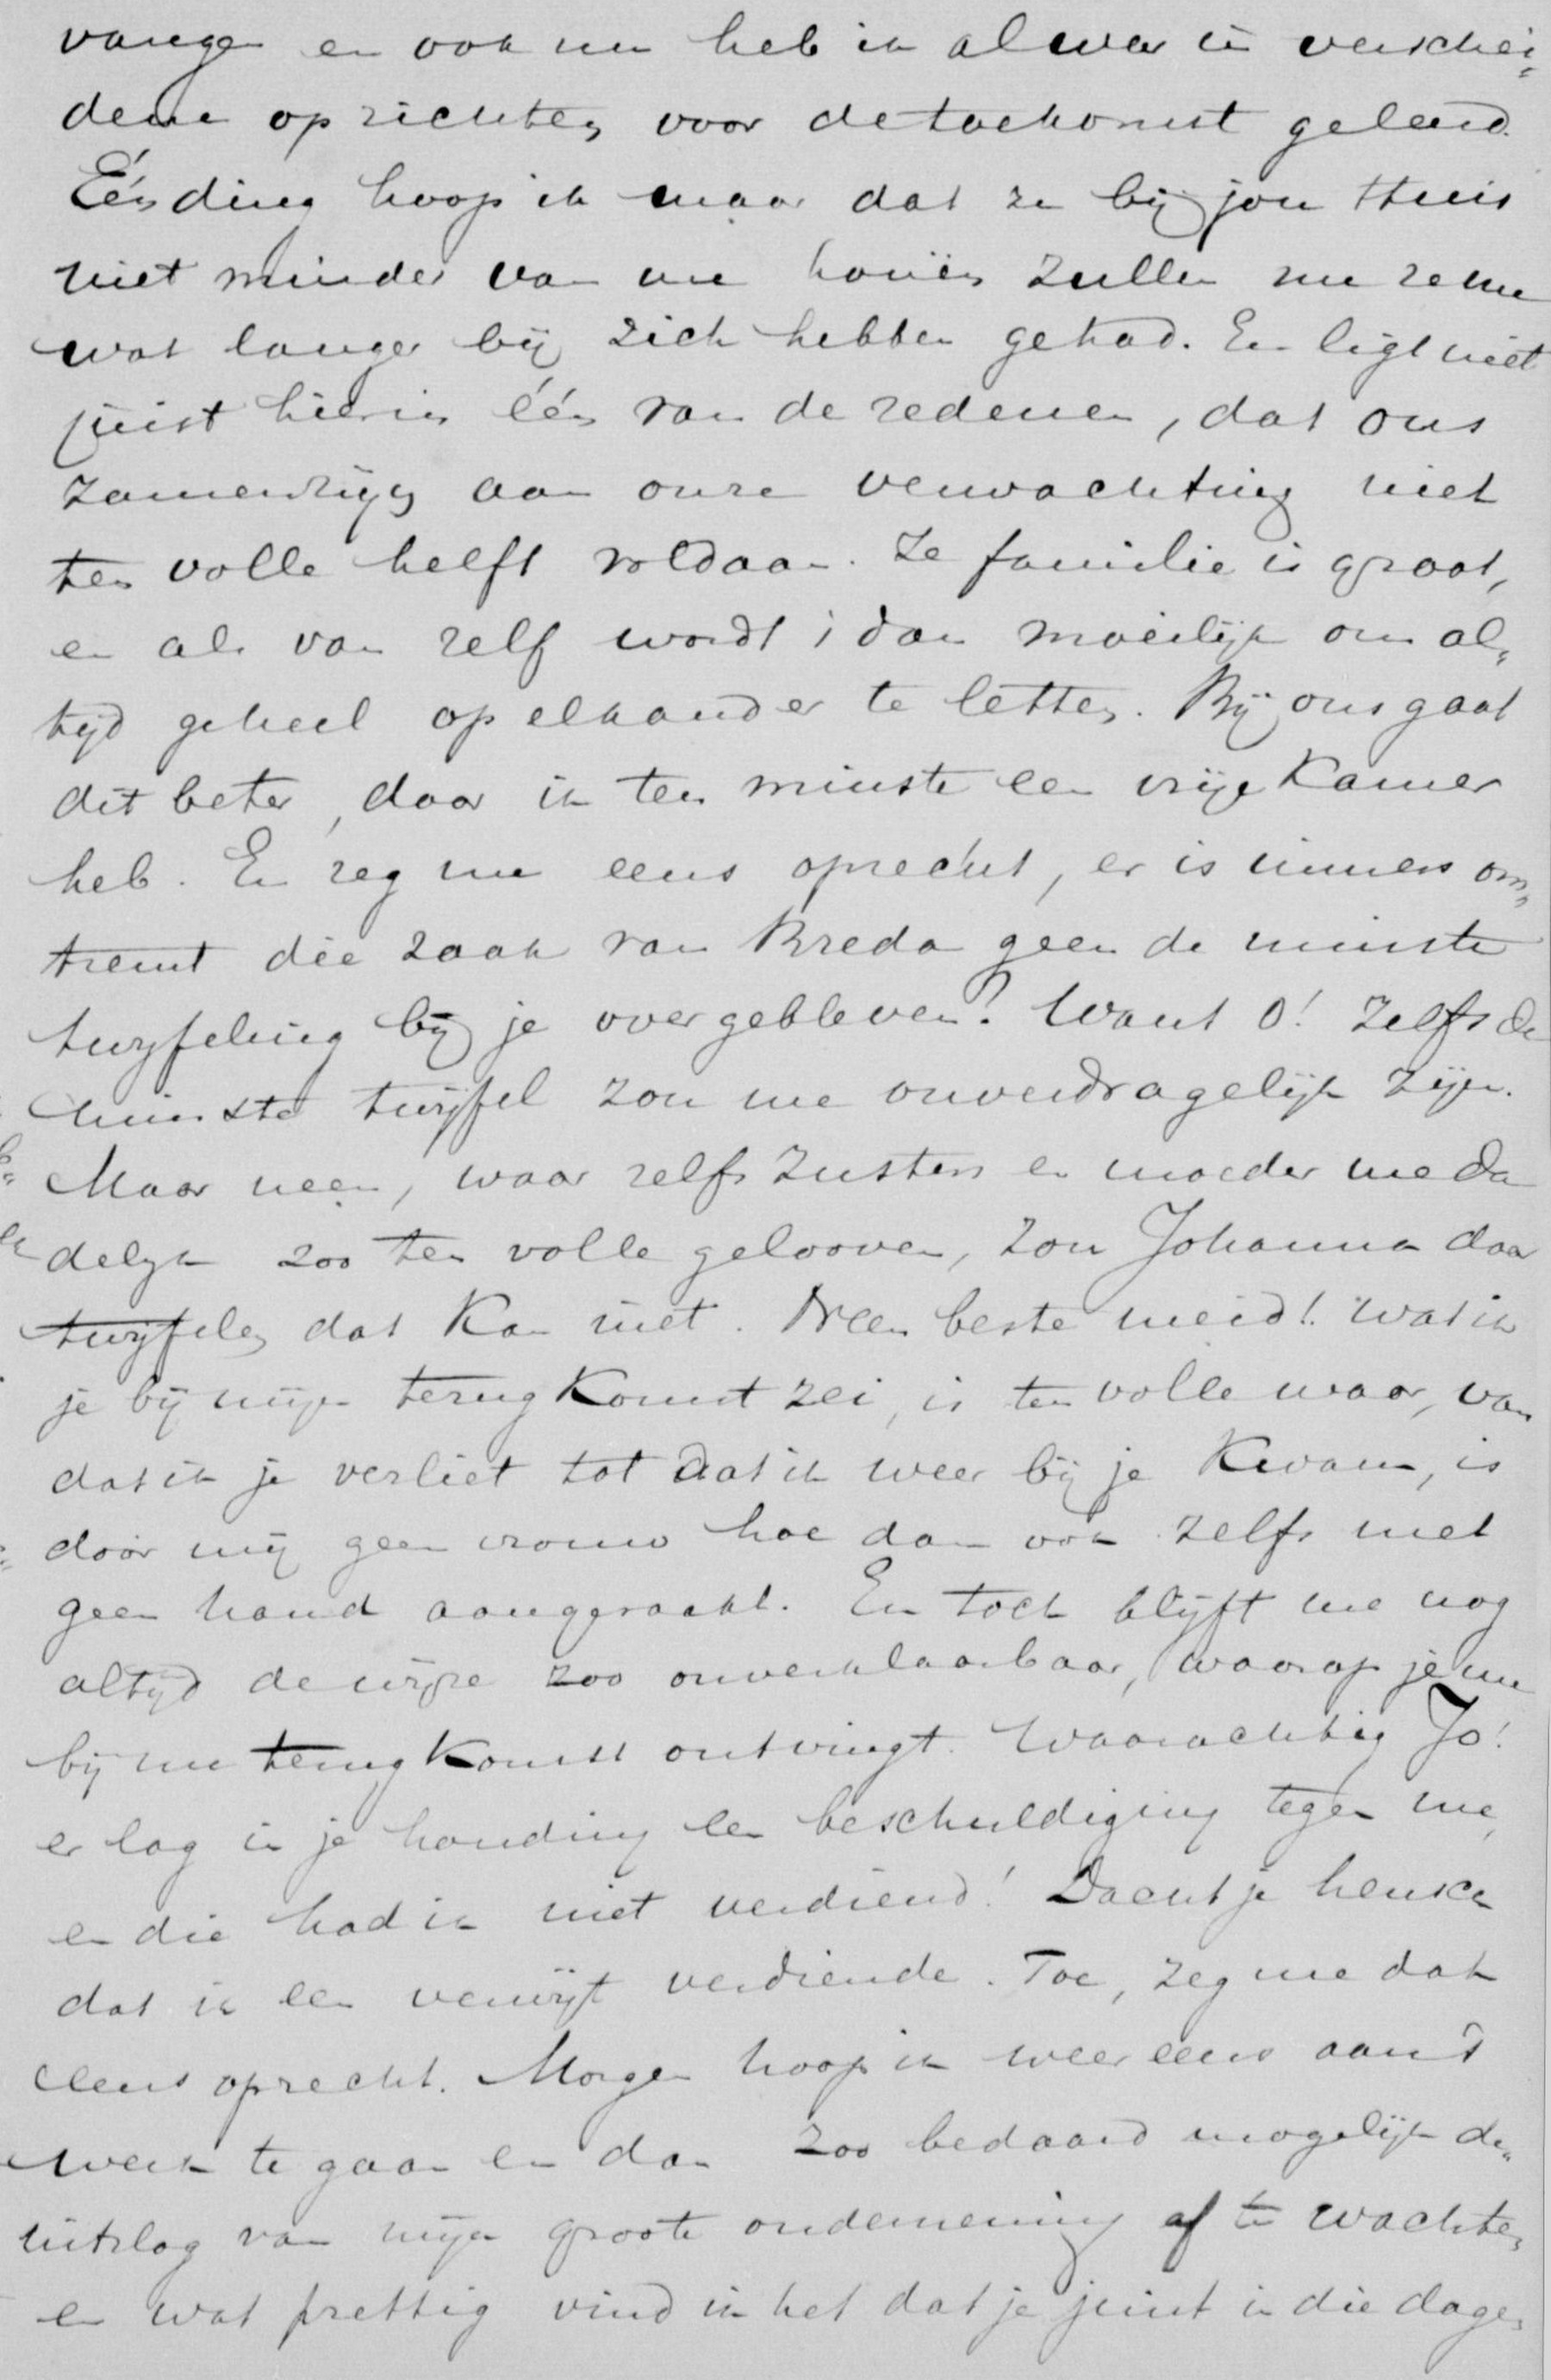 vangen en ook nu heb ik al weer in verschei„
dene opzichten voor de toekomst geleerd.
Één ding hoop ik maar dat ze bij jou thuis
niet minder van me houën zullen nu ze me
wat langer bij zich hebben gehad. En ligt niet
juist hierin één van de redenen, dat ons
zamenzijn aan onze verwachting niet
ten volle heeft voldaan. Je familie is groot,
en als van zelf wordt 't dan moeilijk om al„
tijd geheel op elkander te letten. Bij ons gaat
dit beter, daar ik ten minste een vrije kamer
heb. En zeg me eens oprecht, er is immers om„
trent die zaak van Breda geen de minste
twijfeling bij je overgebleven? Want O! zelfs de
minste twijfel zou me onverdragelijk zijn.
Maar neen, waar zelfs zusters en moeder me da
delijk zoo ten volle gelooven, zou Johanna daar
twijfelen dat kan niet. Neen beste meid! wat ik
je bij mijn terugkomst zei, is ten volle waar, van
dat ik je verliet tot dat ik weer bij je kwam, is
door mij geen vrouw hoe dan ook zelfs met
geen hand aangeraakt. En toch blijft me nog
altijd de wijze zoo onverklaarbaar, waarop je me
bij me terugkomst ontvingt. Waarachtig Jo!
er lag in je houding een beschuldiging tegen me,
en die had ik niet verdiend! Dacht je heusch
dat ik een verwijt verdiende. Toe, zeg me dat
eens oprecht. Morgen hoop ik weer eens aan 't
werk te gaan en dan zoo bedaard mogelijk de„
uitslag van mijn groote onderneming af te wachten,
en wat prettig vind ik het dat je juist in die dagen